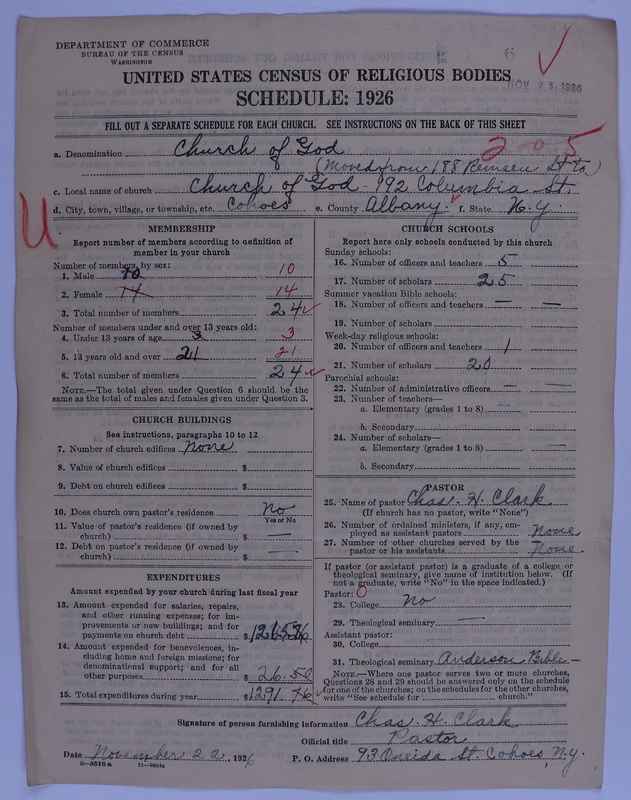 DEPARTMENT OF COMMERCE
BUREAU OF THE CENSUS
WASHINGTON
6
UNITED STATES CENSUS OF RELIGIOUS BODIES
NOV 23, 1926
SCHEDULE: 1926
FILL OUT A SEPARATE SCHEDULE FOR EACH CHURCH. SEE INSTRUCTIONS ON THE BACK OF THIS SHEET
a. Denomination Church of God 2-0-5
(Moved from 188 Remsen St to)
c. Local name of church Church of God 192 Columbia St.
d. City, town, village, or township, etc. Cohoes e. County Albany. f. State. N.Y.
U
MEMBERSHIP
Report number of members according to definition of
member in your church
Number of members, by sex:
1. Male 10 10
2. Female 14 14
3. Total number of members 24
Number of members under and over 13 years old:
4. Under 13 years of age 3 3
5. 13 years old and over 21 21
6. Total number of members 24
NOTE.—The total given under Question 6 should be
the same as the total of males and females given under Question 3.
CHURCH BUILDINGS
See instructions, paragraphs 10 to 12
7. Number of church edifices None
8. Value of church edifices $
9. Debt on church edifices $
10. Does church own pastor's residence No
Yes or No
11. Value of pastor's residence (if owned by
church) $ —
12. Debt on pastor's residence (if owned by
church) $ —
EXPENDITURES
Amount expended by your church during last fiscal year
13. Amount expended for salaries, repairs,
and other running expenses; for im-
provements or new buildings; and for
payments on church debt $ 1265
14. Amount expended for benevolences, in-
cluding home and foreign missions; for
denominational support; and for all
other purposes $ 26.50
15. Total expenditures during year $ 1291.76
CHURCH SCHOOLS
Report here only schools conducted by this church
Sunday schools:
16. Number of officers and teachers 5
17. Number of scholars 25
Summer vacation Bible schools:
18. Number of officers and teachers — —
19. Number of scholars
Week-day religious schools:
20. Number of officers and teachers 1
21. Number of scholars 20
Parochial schools:
22. Number of administrative officers — —
23. Number of teachers—
a. Elementary (grades 1 to 8) —
b. Secondary
24. Number of scholars—
a. Elementary (grades 1 to 8) — —
b. Secondary
PASTOR
25. Name of pastor Chas. H. Clark
(If church has no pastor, write "None")
26. Number of ordained ministers, if any, em-
ployed as assistant pastors None
27. Number of other churches served by the
pastor or his assistants None.
If pastor (or assistant pastor) is a graduate of a college or
theological seminary, give name of institution below. (If
not a graduate, write "No" in the space indicated.)
Pastor: O
28. College No
29. Theological seminary —
Assistant pastor:
30. College
31. Theological seminary. Anderson Bible —
NOTE.—Where one pastor serves two or more churches,
Questions 28 and 29 should be answered only on the schedule
for one of the churches; on the schedules for the other churches,
write "See schedule for church."
Signature of person furnishing information Chas. H. Clark
Official title Pastor
Date November 22, 1926 P. O. Address 93 Oneida St. Cohoes, N.Y.
8—5518a 11—9064a